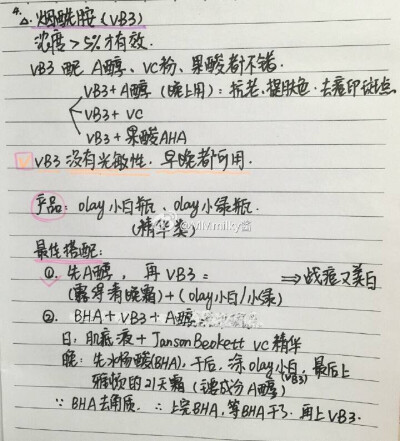 4.
△. 烟酰胺 (VB3)
浓度>5%才有效.
VB3 配 A醇、VC粉、果酸都不错.
VB3+A醇 (晚上用): 抗老、提肤色、去痘印斑点
VB3+VC
VB3+果酸AHA
VB3 没有光敏性. 早晚都可用.
产品: olay小白瓶、olay小绿瓶.
(精华类)
最佳搭配:
①. 先A醇, 再VB3: ⇒战痘又美白
(露得清晚霜)+(olay小白/小绿)
②. BHA+VB3+A醇
日: 肌底液+JansonBeckett VC精华
晚: 先水杨酸(BHA), 干后, 涂olay小白, 最后上
(VB3)
雅顿的21天霜 (主成分A醇)
∵ BHA去角质. ∴ 上完BHA, 等BHA干了. 再上VB3.